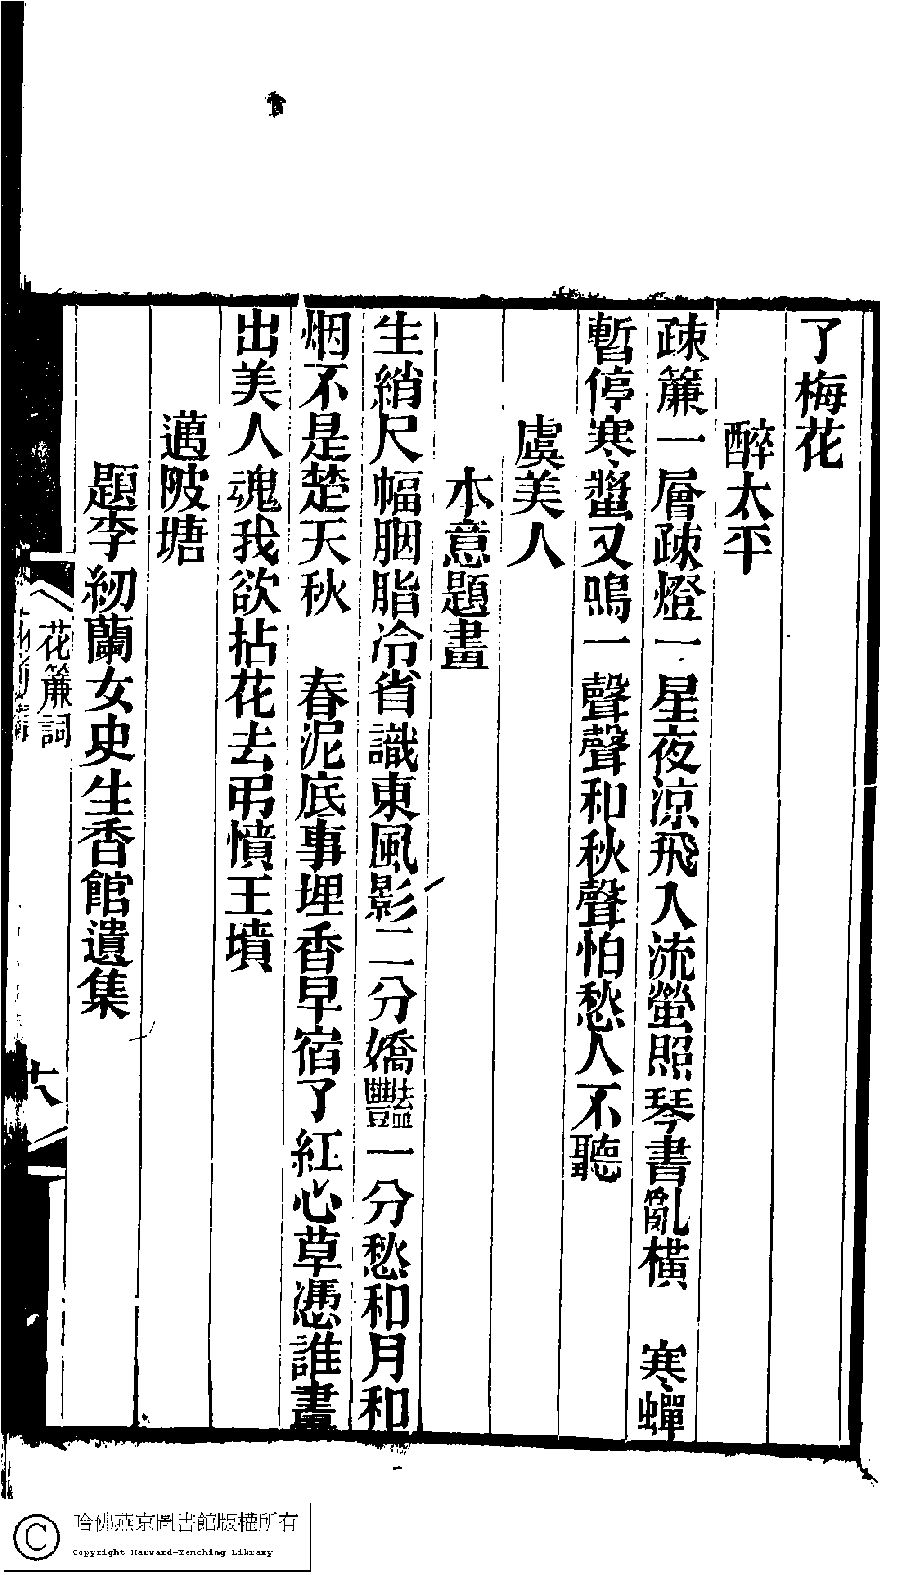 了梅花
醉太平
疎簾一層疎燈一星夜涼飛入流螢照琴書亂橫　寒蟬
暫停寒螿又鳴一聲聲和秋聲怕愁人不聽
虞美人
本意題畫
生綃尺幅胭脂冷省識東風影二分嬌豔一分愁和月和
烟不是楚天秋　春泥底事埋香早宿了紅心草憑誰畫
出美人魂我欲拈花去弔憤王墳
邁陂塘
題李紉蘭女史生香館遺集
花簾詞
十八
哈佛燕京圖書館版權所有
Copyright Harvard-Yenching Library